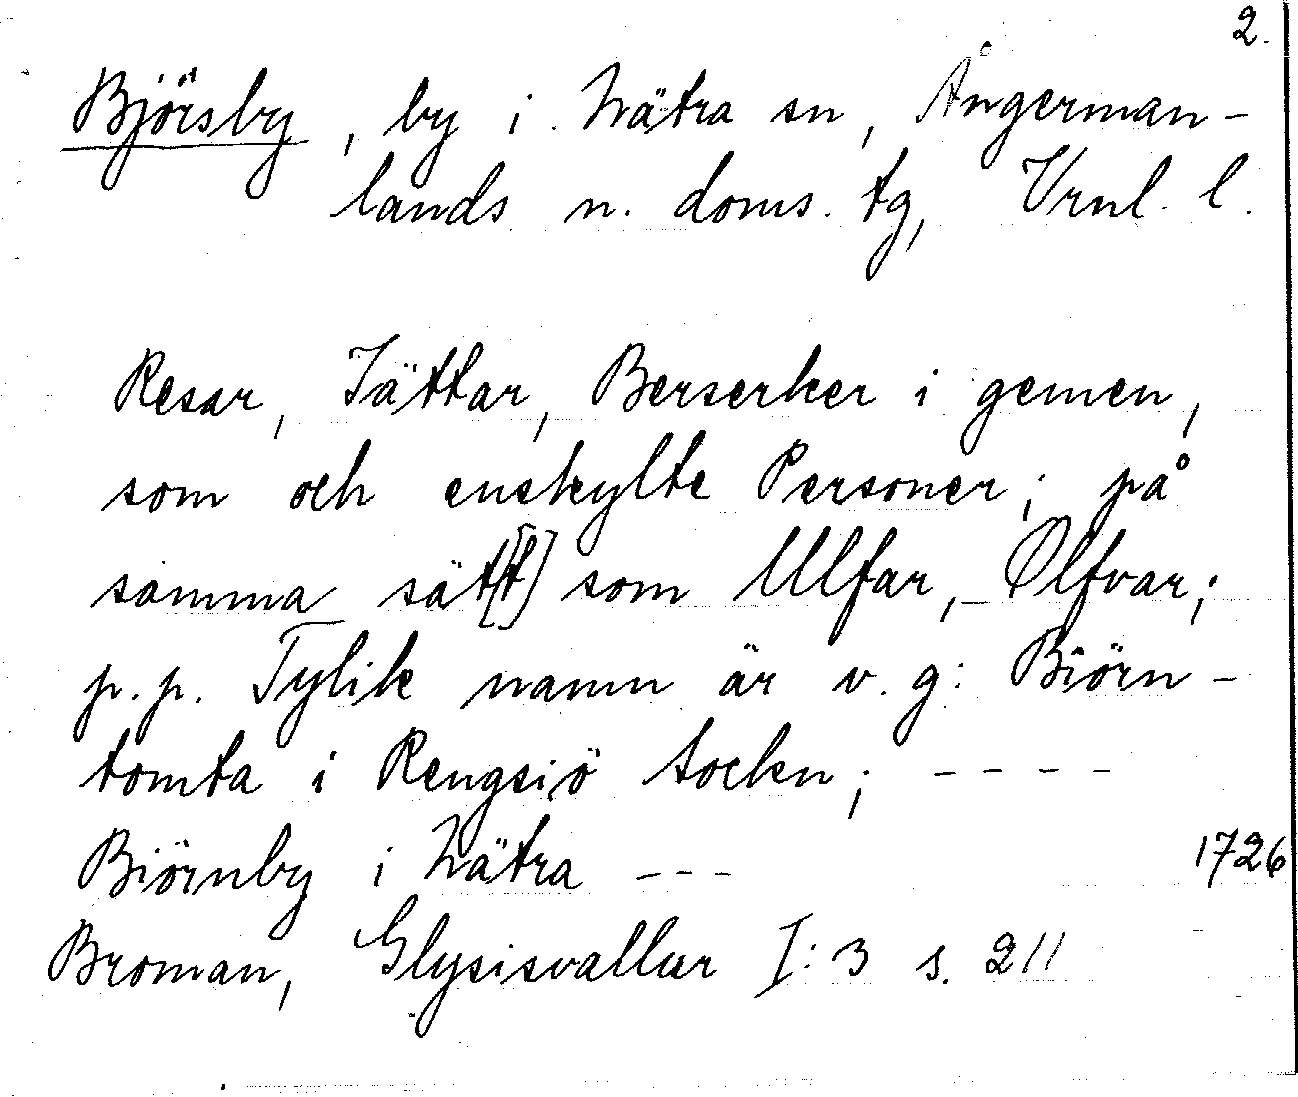 2.
Björsby, by i Nätra sn, Ångerman-
lands n. doms. tg, Vrnl. l.
Resar, Jättar, Berserker i gemen,
som och enskylte Personer; på
samma sätt[t] som Ulfar, Ølfvar;
p.p. Tylik namn är v. g: Biörn-
tomta i Rengsiö Sockn; ----
Biörnby i Nätra --- 1726
Broman, Glysisvallur I:3 s. 211